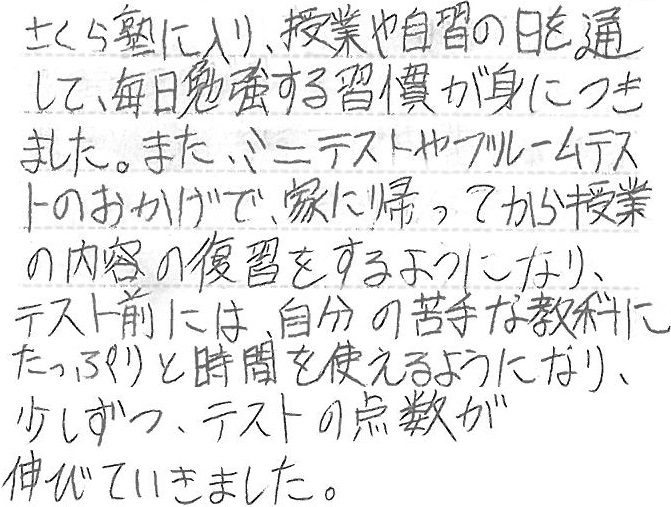 さくら塾に入り、授業や自習の日を通
して、毎日勉強する習慣が身につき
ました。また、ミニテストやブルームテス
トのおかげで、家に帰ってから授業
の内容の復習をするようになり、
テスト前には、自分の苦手な教科に
たっぷりと時間を使えるようになり、
少しずつ、テストの点数が
伸びていきました。